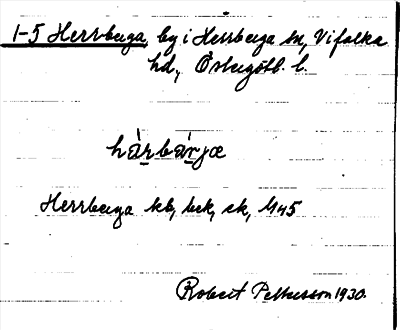 1-5 Herrberga, by i Herrberga sn, Vifolka
hd, Östergötl. l.
hàrbárjæ
Herrberga kb, bck, sk, M45
Robert Pettersson 1930.